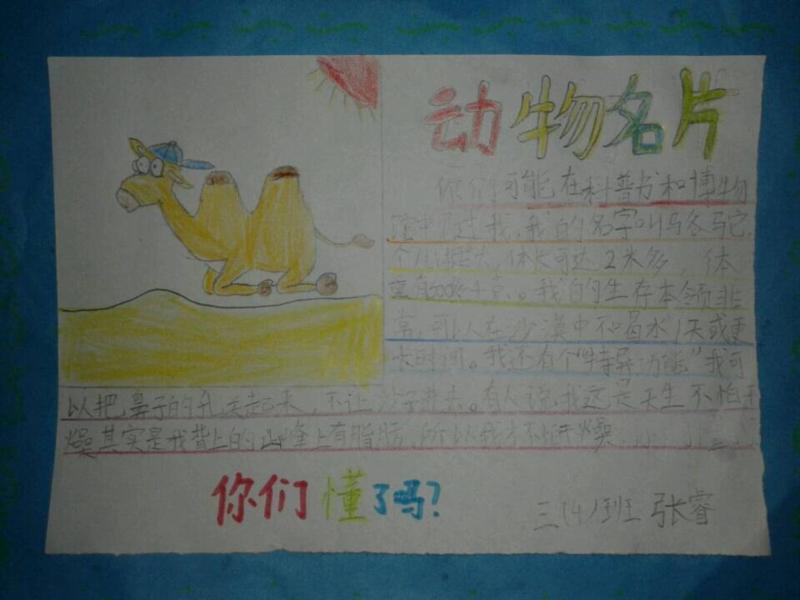 动物名片
你们可能在科普书和博物
馆中见过我,我的名字叫骆驼,
个儿挺大,体长可达2米多 体
重有600多千克。我的生存本领非
常,可以在沙漠中不喝水1天或更
长时间。我还有个“特异功能”我可
以把鼻子的孔关起来,不让沙子进去。有人说,我这是天生不怕干
燥其实是我背上的山峰上有脂肪,所以我才不怕干燥
你们懂了吗?
三(4)班 张睿